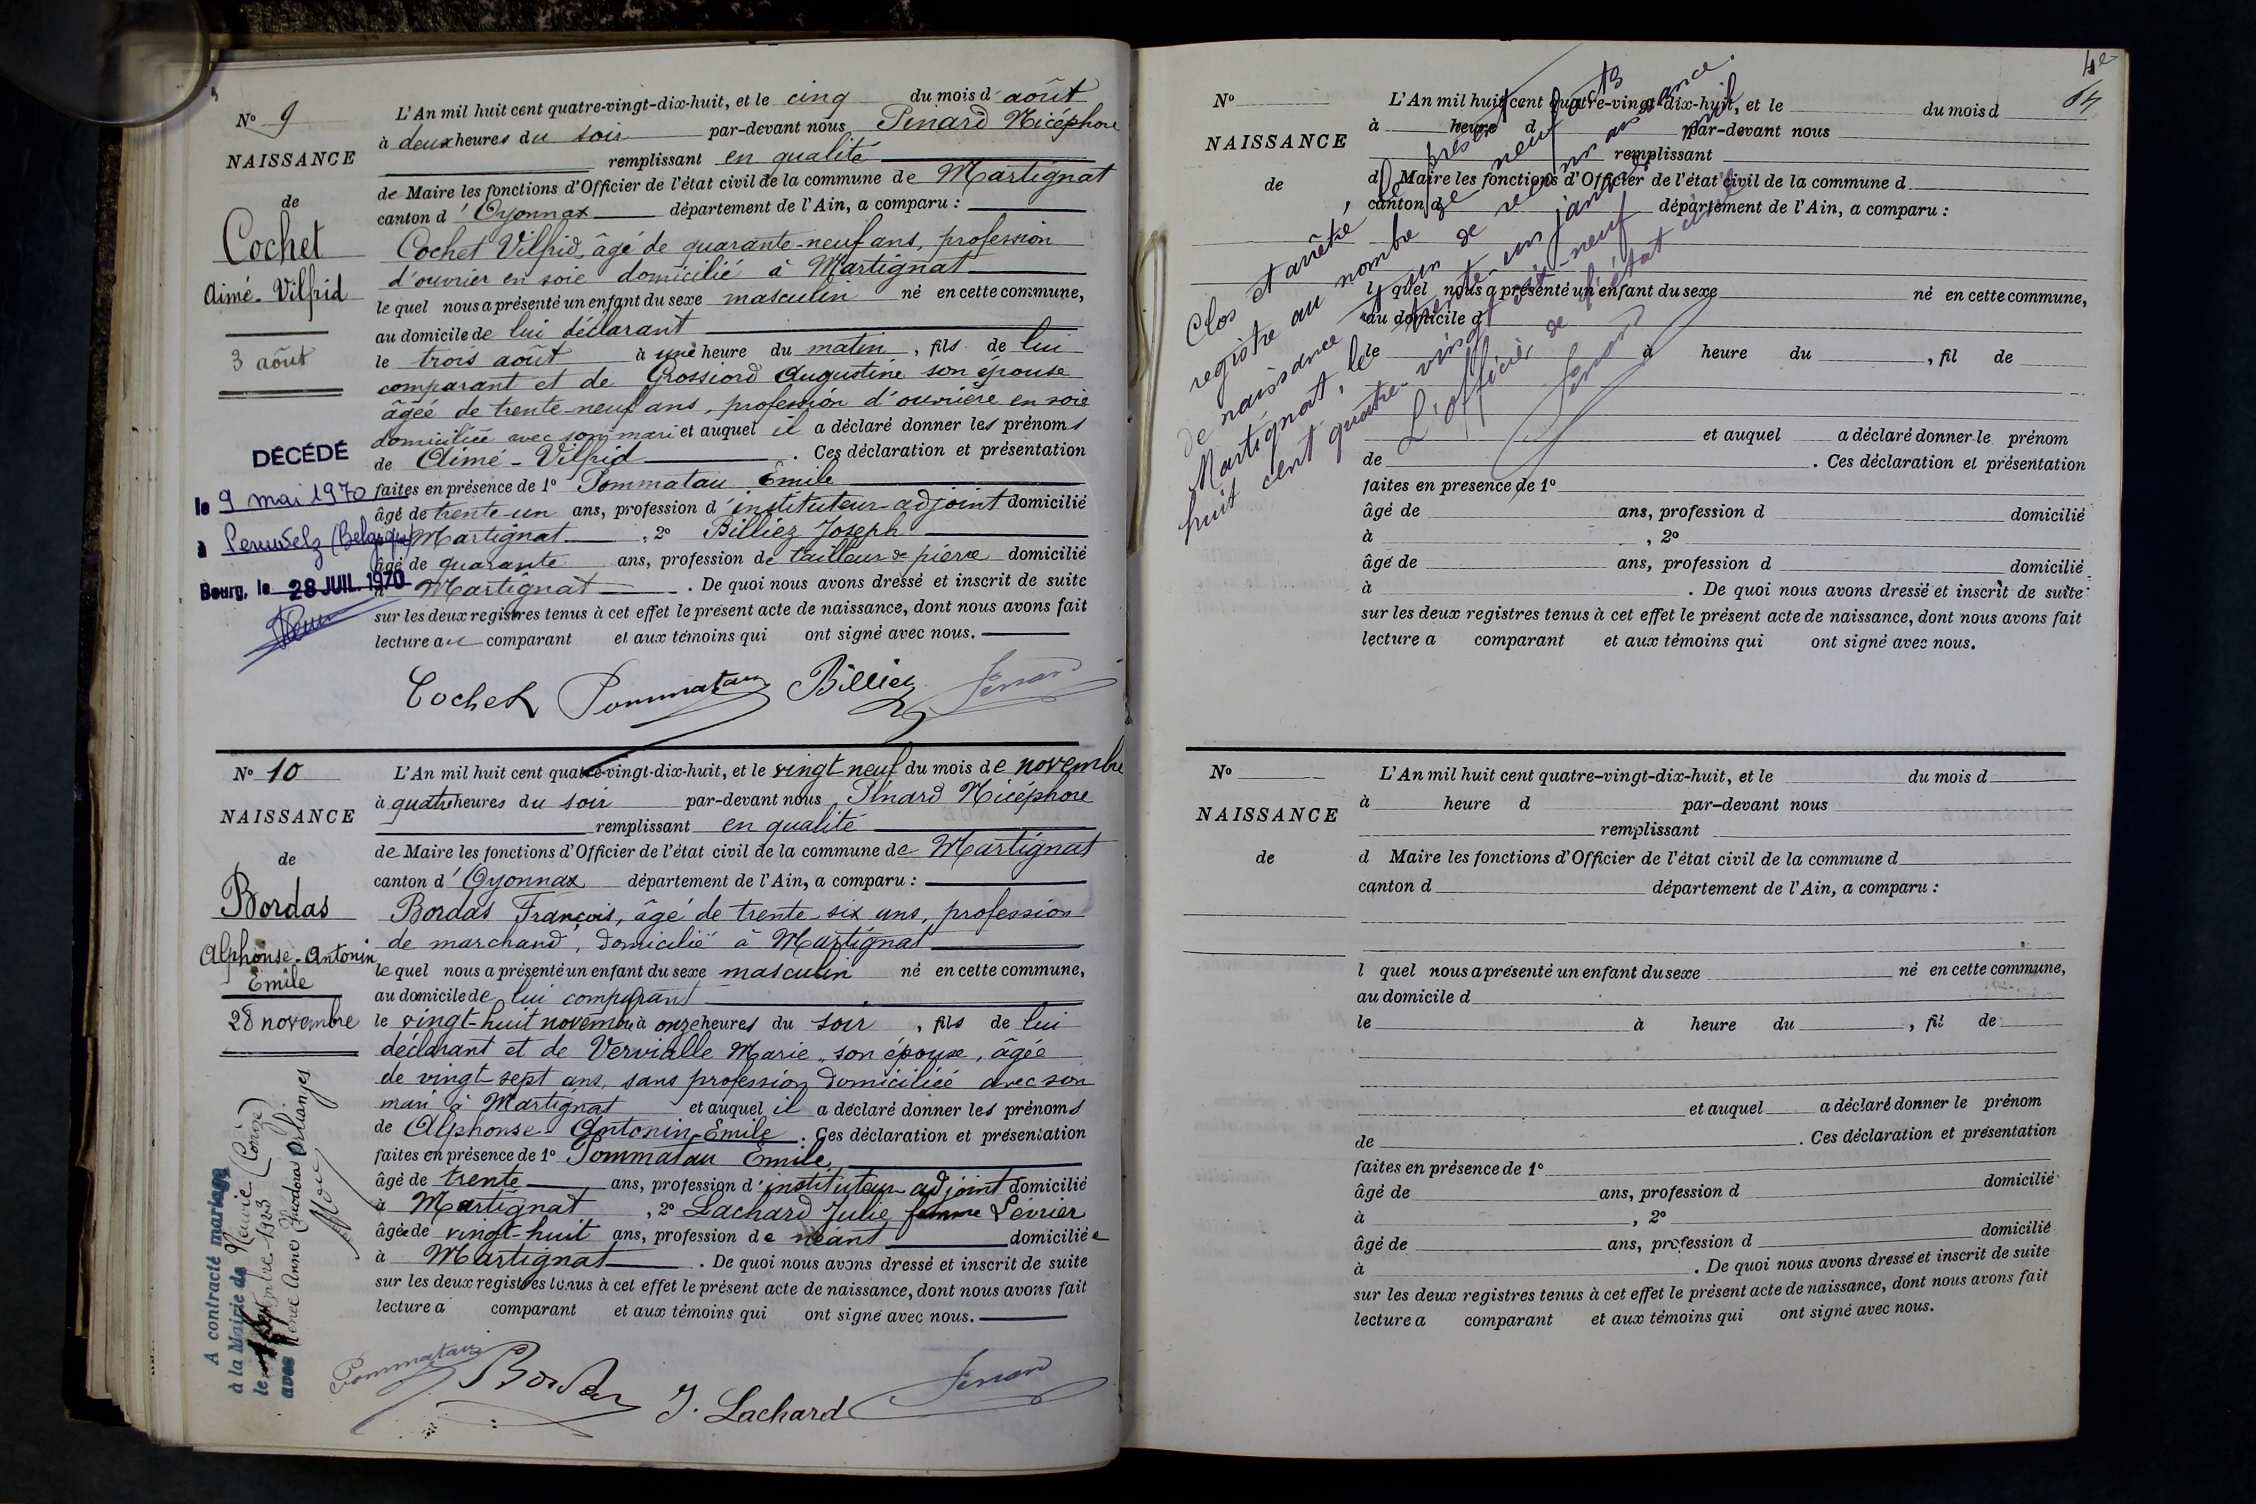 N° 9
NAISSANCE
de
Cochet
Aimé-Vilfrid
3 août
DÉCÉDÉ
le 9 mai 1970
à Peruwelz (Belgique)
Bourg, le 28 JUIL. 1970
L'An mil huit cent quatre-vingt-dix-huit, et le cinq du mois d'août
à deux heures du soir par-devant nous Pinard Nicéphore
remplissant en qualité
de Maire les fonctions d'Officier de l'état civil de la commune de Martignat
canton d'Oyonnax département de l'Ain, a comparu :
Cochet Vilfrid, âgé de quarante-neuf ans, profession
d'ouvrier en soie domicilié à Martignat
le quel nous a présenté un enfant du sexe masculin né en cette commune,
au domicile de lui déclarant
le trois août à une heure du matin, fils de lui
comparant et de Grossiord Augustine son épouse
âgée de trente-neuf ans, profession d'ouvrière en soie
domiciliée avec son mari et auquel il a déclaré donner les prénoms
de Aimé-Vilfrid. Ces déclaration et présentation
faites en présence de 1° Pommatau Emile
âgé de trente-un ans, profession d'instituteur adjoint domicilié
à Martignat, 2° Billiez Joseph
âgé de quarante ans, profession de tailleur de pierre domicilié
à Martignat. De quoi nous avons dressé et inscrit de suite
sur les deux registres tenus à cet effet le présent acte de naissance, dont nous avons fait
lecture au comparant et aux témoins qui ont signé avec nous.
Cochet Pommatau Billiez Pinard
N° 10
NAISSANCE
de
Bordas
Alphonse-Antonin
Emile
28 novembre
A contracté mariage
à la Mairie de Neuvic (Corrèze)
le septembre 1923
avec Renée Anne Théodora Orlianges
L'An mil huit cent quatre-vingt-dix-huit, et le vingt neuf du mois de novembre
à quatre heures du soir par-devant nous Pinard Nicéphore
remplissant en qualité
de Maire les fonctions d'Officier de l'état civil de la commune de Martignat
canton d'Oyonnax département de l'Ain, a comparu :
Bordas François, âgé de trente-six ans, profession
de marchand, domicilié à Martignat
le quel nous a présenté un enfant du sexe masculin né en cette commune,
au domicile de lui comparant
le vingt-huit novembre à onze heures du soir, fils de lui
déclarant et de Vervialle Marie, son épouse, âgée
de vingt-sept ans, sans profession domiciliée avec son
mari à Martignat et auquel il a déclaré donner les prénoms
de Alphonse-Antonin-Emile. Ces déclaration et présentation
faites en présence de 1° Pommatau Emile,
âgé de trente ans, profession d'instituteur adjoint domicilié
à Martignat, 2° Lachard Julie femme Levrier
âgée de vingt-huit ans, profession de néant domiciliée
à Martignat. De quoi nous avons dressé et inscrit de suite
sur les deux registres tenus à cet effet le présent acte de naissance, dont nous avons fait
lecture a comparant et aux témoins qui ont signé avec nous.
Pommatau Bordas J. Lachard Pinard
4e
N°
NAISSANCE
de
L'An mil huit cent quatre-vingt-dix-huit, et le du mois d
à heure d par-devant nous
remplissant
d Maire les fonctions d'Officier de l'état civil de la commune d
canton d département de l'Ain, a comparu :
l quel nous a présenté un enfant du sexe né en cette commune,
au domicile d
le à heure du , fil de
et auquel a déclaré donner le prénom
de . Ces déclaration et présentation
faites en presence de 1°
âgé de ans, profession d domicilié
à , 2°
âgé de ans, profession d domicilié
à . De quoi nous avons dressé et inscrit de suite
sur les deux registres tenus à cet effet le présent acte de naissance, dont nous avons fait
lecture a comparant et aux témoins qui ont signé avec nous.
Clos et arrêté le présent
registre au nombre de neuf acts
de naissance
Martignat, le trente-un janvier mil
huit cent quatre-vingt-dix-neuf
L'officier de l'état civil
Pinard
N°
NAISSANCE
de
L'An mil huit cent quatre-vingt-dix-huit, et le du mois d
à heure d par-devant nous
remplissant
d Maire les fonctions d'Officier de l'état civil de la commune d
canton d département de l'Ain, a comparu :
l quel nous a présenté un enfant du sexe né en cette commune,
au domicile d
le à heure du , fil de
et auquel a déclaré donner le prénom
de . Ces déclaration et présentation
faites en présence de 1°
âgé de ans, profession d domicilié
à , 2°
âgé de ans, profession d domicilié
à . De quoi nous avons dressé et inscrit de suite
sur les deux registres tenus à cet effet le présent acte de naissance, dont nous avons fait
lecture a comparant et aux témoins qui ont signé avec nous.